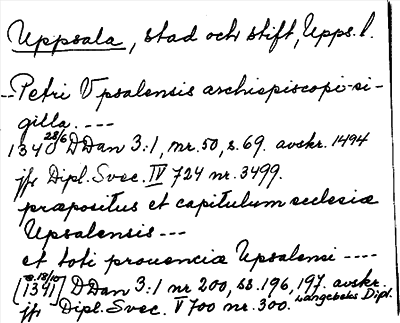 Uppsala, stad och stift, Upps. l.
--Petri Vpsalensis archiepiscopi si-
gilla. ----
1340 28/6 DDan 3:1, nr. 50, s. 69. avskr. 1494
jfr Dipl. Svec. IV 724 nr. 3499.
præpositus et capitulum ecclesiæ
Upsalensis ---
et toti prouenciæ Upsalensi ----
[1341] 18/10 DDan 3:1 nr 200, ss. 196, 197. avskr.
Langebeks Dipl.
jfr Dipl. Svec. V 700 nr. 300.